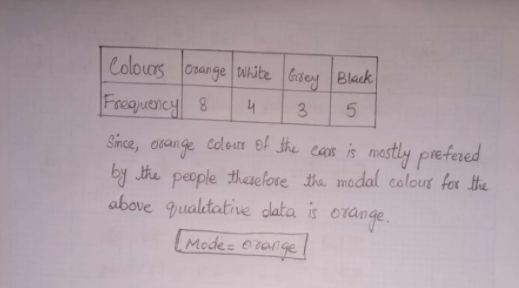 Colours Orange White Grey Black
Frequency 8 4 3 5
Since, orange colour of the cars is mostly prefered
by the people therefore the modal colour for the
above qualitative data is orange.
Mode = orange